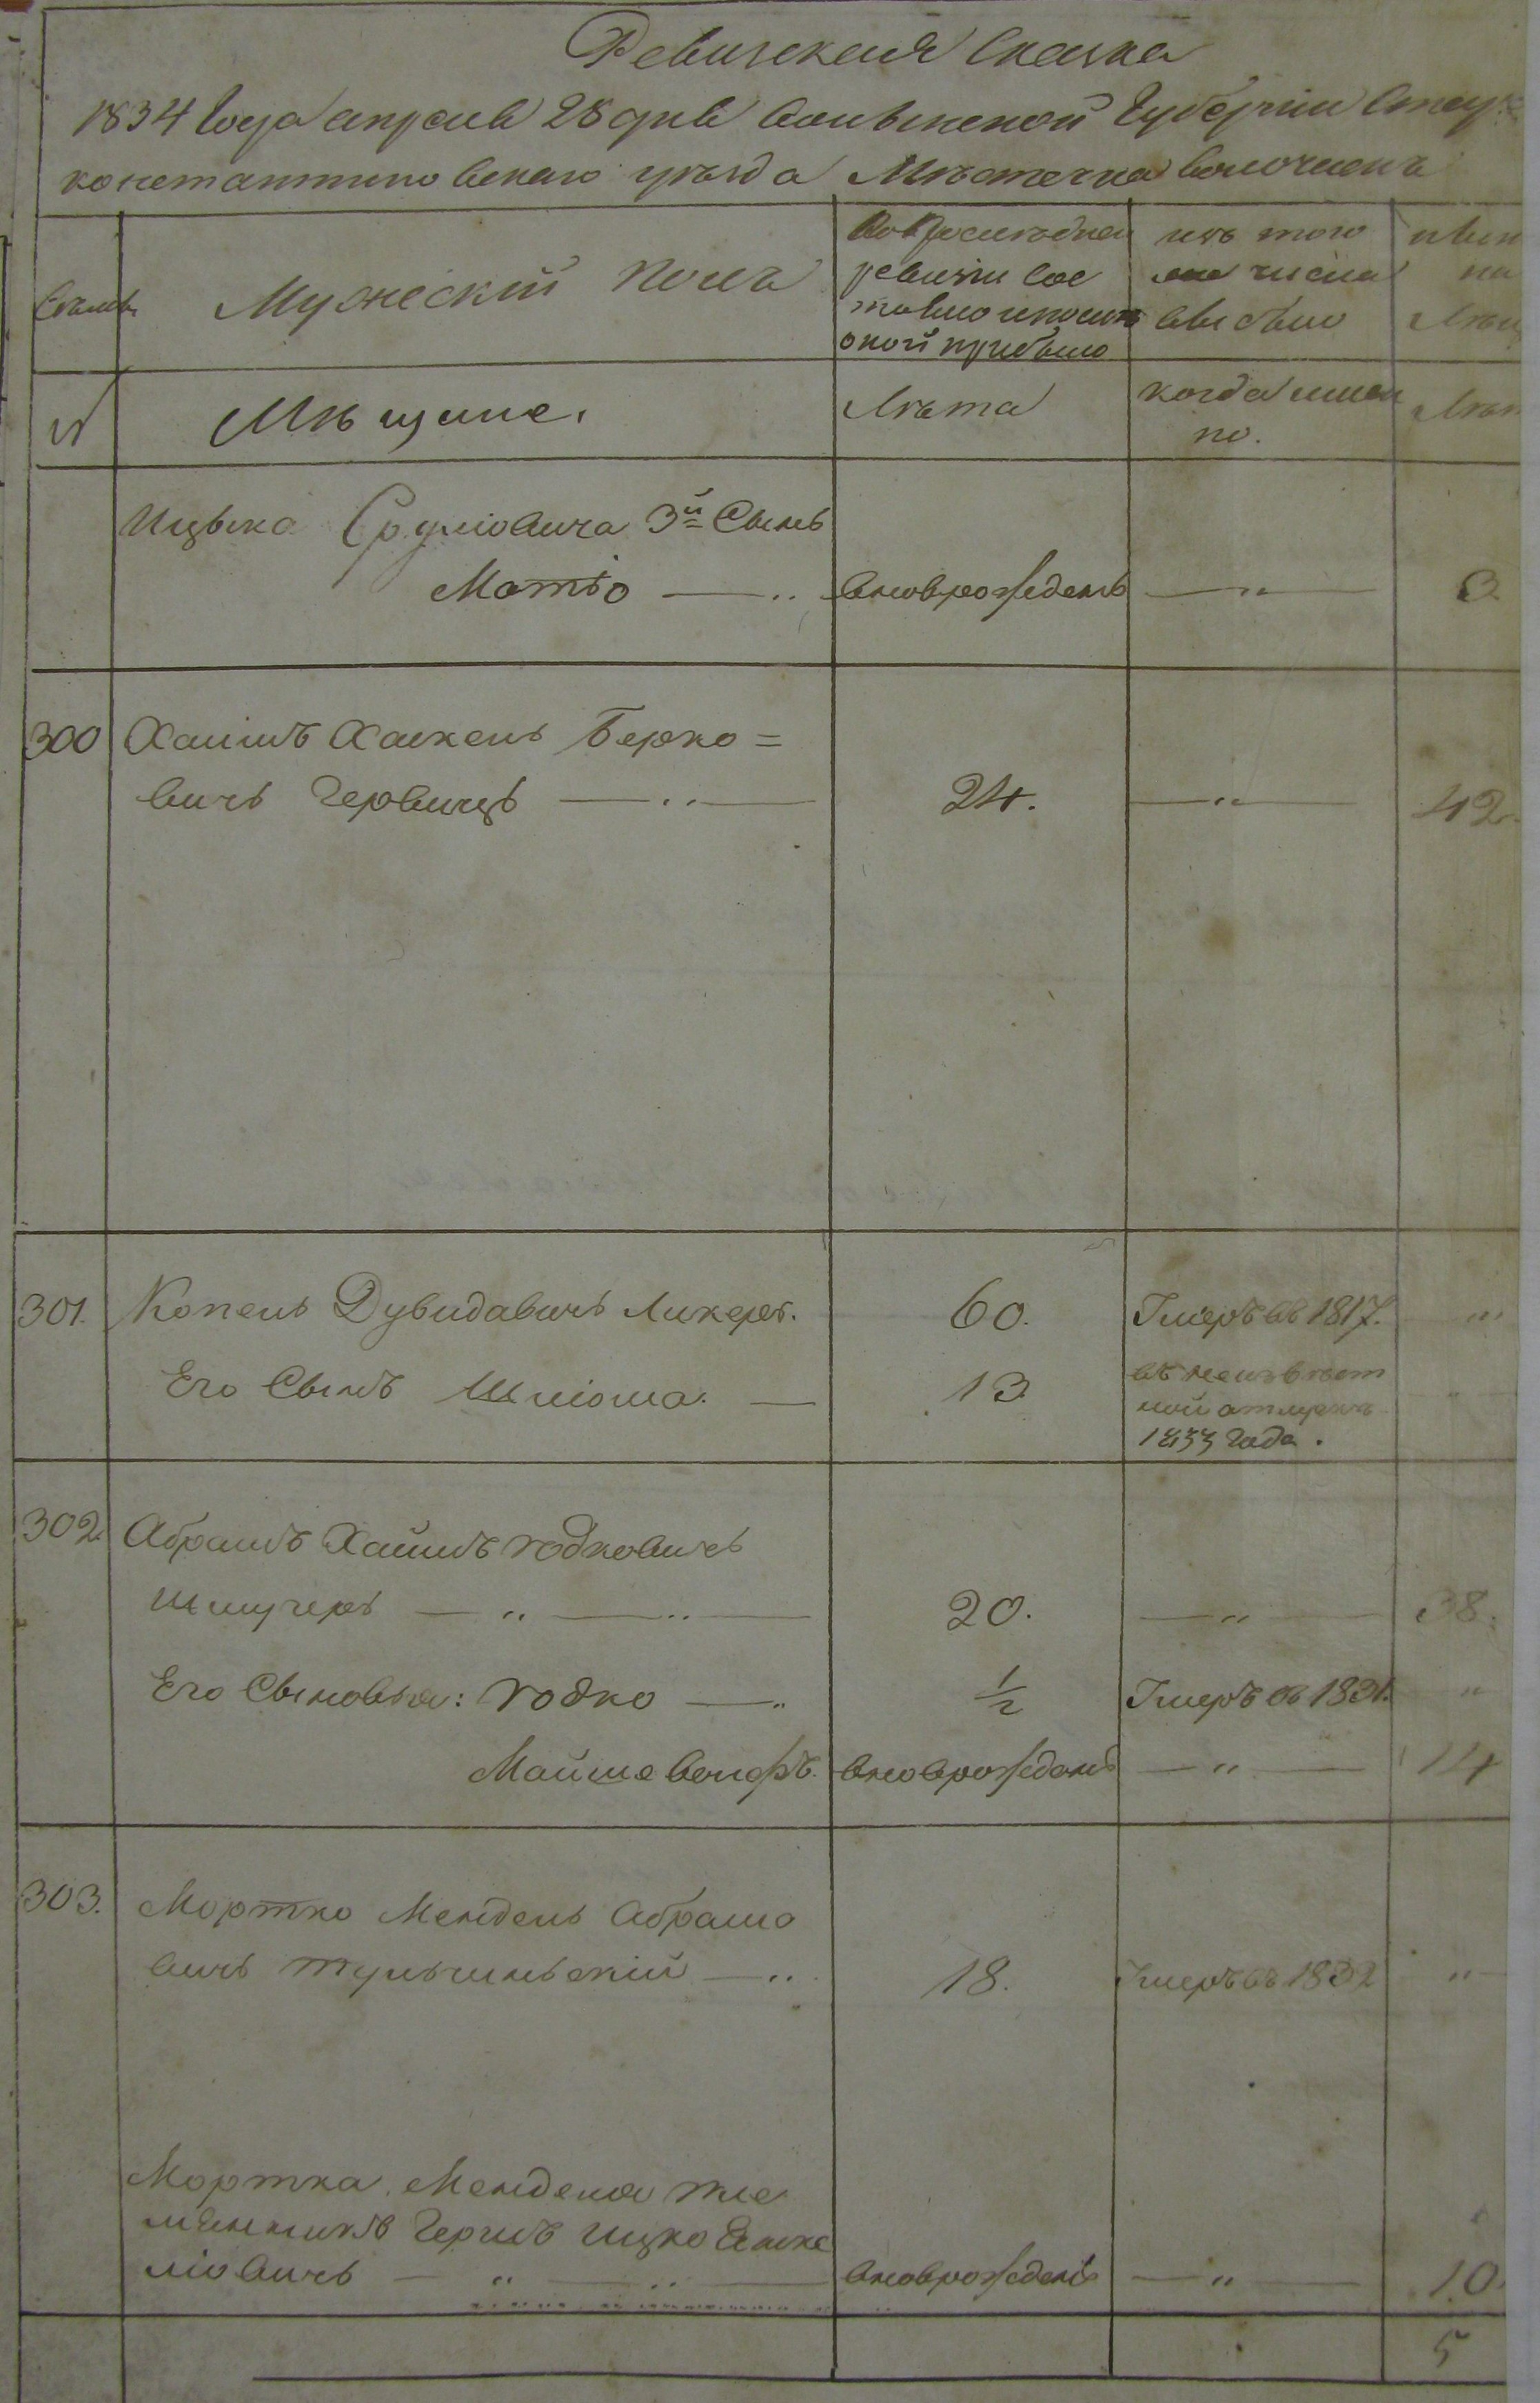 Ревизская Сказка
1834 Года апреля 28 дня Волынской Губернии Старо
константиновскаго уѣзда Мѣстечка Волочискъ
Семьи
Мужескій полъ
По последней
ревизіи сос
тояло и после
оной прибыло
изъ того
числа
выбыло
нын
на
Лѣц
№
Мѣщане.
Лѣта
когда имен
но.
Лѣт
Ицька Сруліовича 3й Сынъ
Мотіо — „ вновьрожденъ — „ — 3
300 Хаимъ Хаскель Берко=
вичъ Гервицъ — „ — 24. — „ — 42
301. Копель Дувидавичъ Ликеръ. 60. Умеръ въ 1817. „
Его Сынъ Шліома. — 13 въ неизвѣст
ной отлучкѣ
1833 года.
302. Абрамъ Хаимъ Іодковичъ
Шмугеръ — „ — „ — 20. — „ — 38.
Его Сыновья: Іодко — „ 1/2 Умеръ въ 1831. „
Майше Вольфъ. вновьрожденъ — „ — 14
303. Мортко Мендель Абрамо
вичъ Тульчинскій — „ 18. Умеръ въ 1832 „
Мортка Менделя пле
мянникъ Гершъ Ицко
ліовичъ — „ — „ — вновьрожденъ — „ — 10.
5